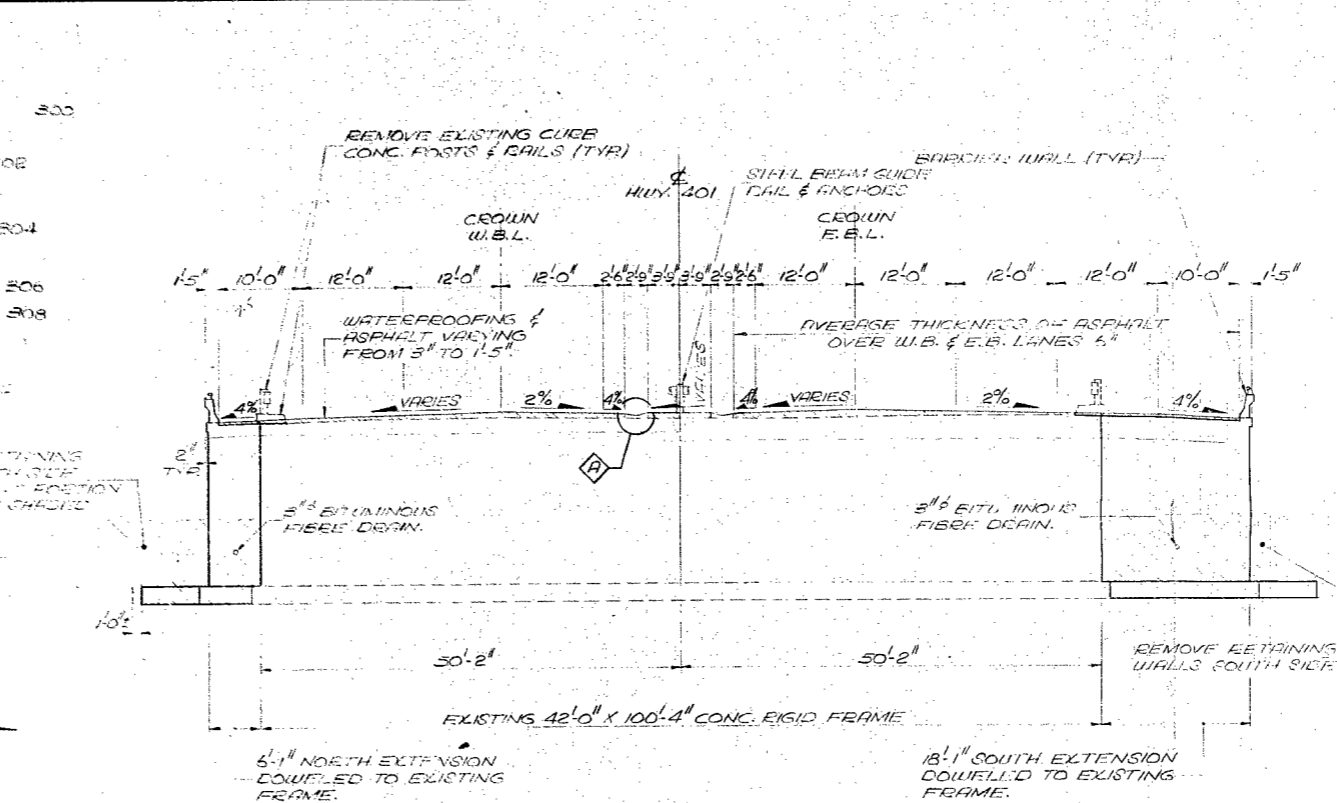 300
REMOVE EXISTING CURB
CONC. POSTS & RAILS (TYP)
BARRIER WALL (TYP)
℄
HWY. 401
STEEL BEAM GUIDE
RAIL & ANCHORS
CROWN
W.B.L.
CROWN
E.B.L.
304
306
308
1'-5" 10'-0" 12'-0" 12'-0" 12'-0" 2'-6" 2'-9" 3'-9" 3'-9" 2'-9" 2'-6" 12'-0" 12'-0" 12'-0" 12'-0" 10'-0" 1'-5"
WATERPROOFING &
ASPHALT VARYING
FROM 3" TO 1'-5"
AVERAGE THICKNESS OF ASPHALT
OVER W.B. & E.B. LANES 6"
VARIES
4% VARIES 2% 4% 4% VARIES 2% 4%
A
2"
TYP.
PORTION
3"ϕ BITUMINOUS
FIBRE DRAIN.
3"ϕ BITUMINOUS
FIBRE DRAIN.
1'-0"±
50'-2" 50'-2"
REMOVE RETAINING
WALLS SOUTH SIDE
EXISTING 42'-0" X 100'-4" CONC. RIGID FRAME
6'-1" NORTH EXTENSION
DOWELLED TO EXISTING
FRAME.
18'-1" SOUTH EXTENSION
DOWELLED TO EXISTING
FRAME.